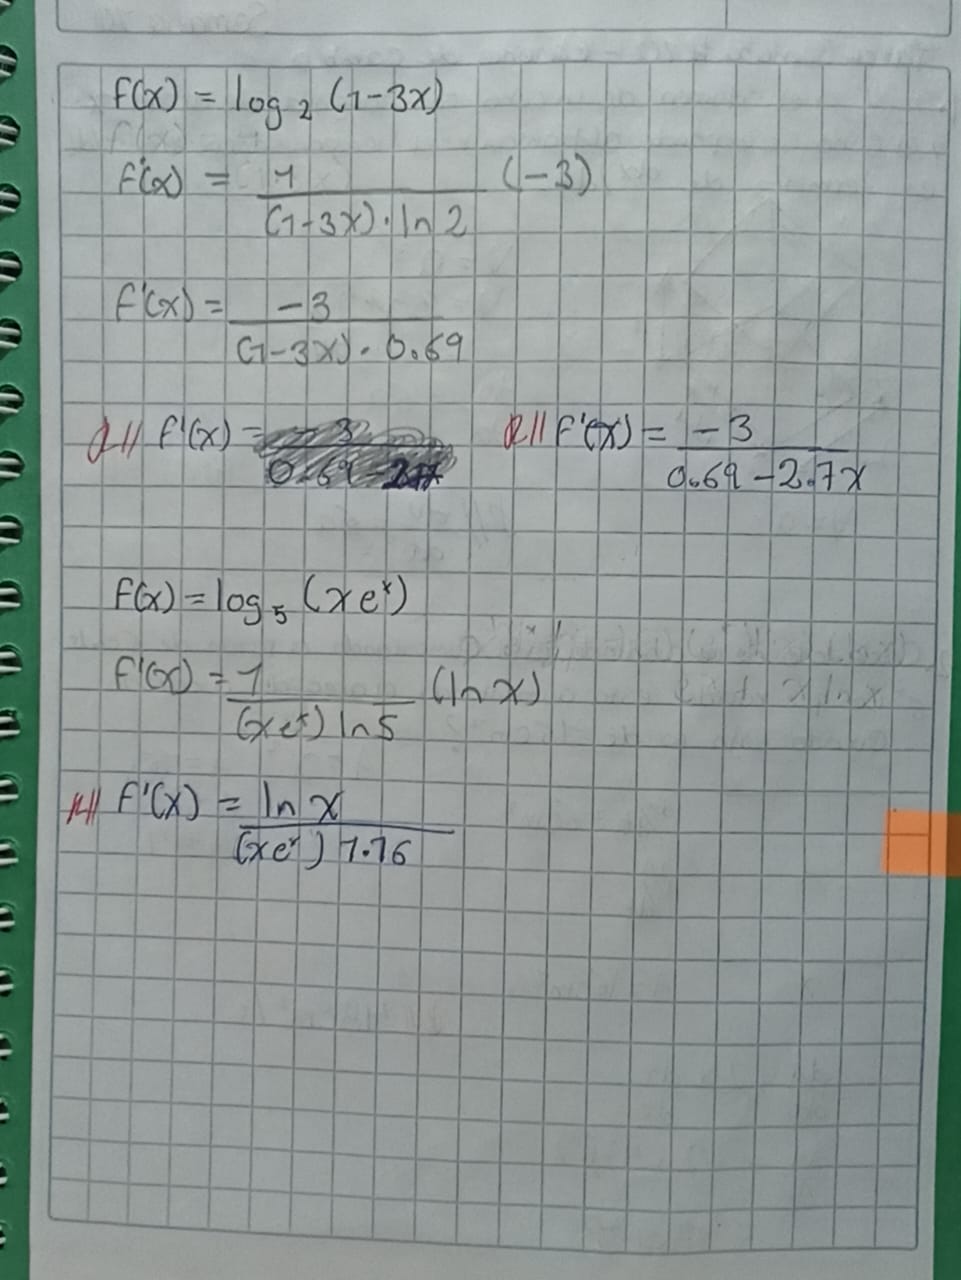 f(x) = log₂ (1-3x)
f'(x) = 1 / ((1-3x)·ln 2) (-3)
f'(x) = -3 / ((1-3x)·0.69)
R// f'(x) =
R// f'(x) = -3 / (0.69 - 2.7x)
f(x) = log₅ (xeˣ)
f'(x) = 1 / ((xeˣ) ln 5) (ln x)
R// f'(x) = ln x / ((xeˣ) 1.16)